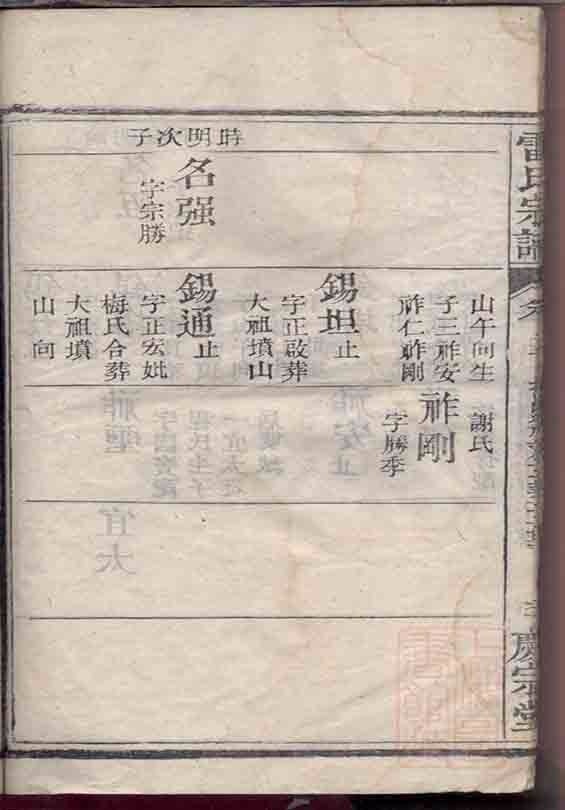 雷氏宗譜
慶宗堂
時明次子
名强
字宗勝
山午向生
子三祚安
祚仁祚剛
錫坦止
字正啟葬
大祖墳山
錫通止
字正宏妣
梅氏合葬
大祖墳
山向
謝氏
祚剛
字勝季